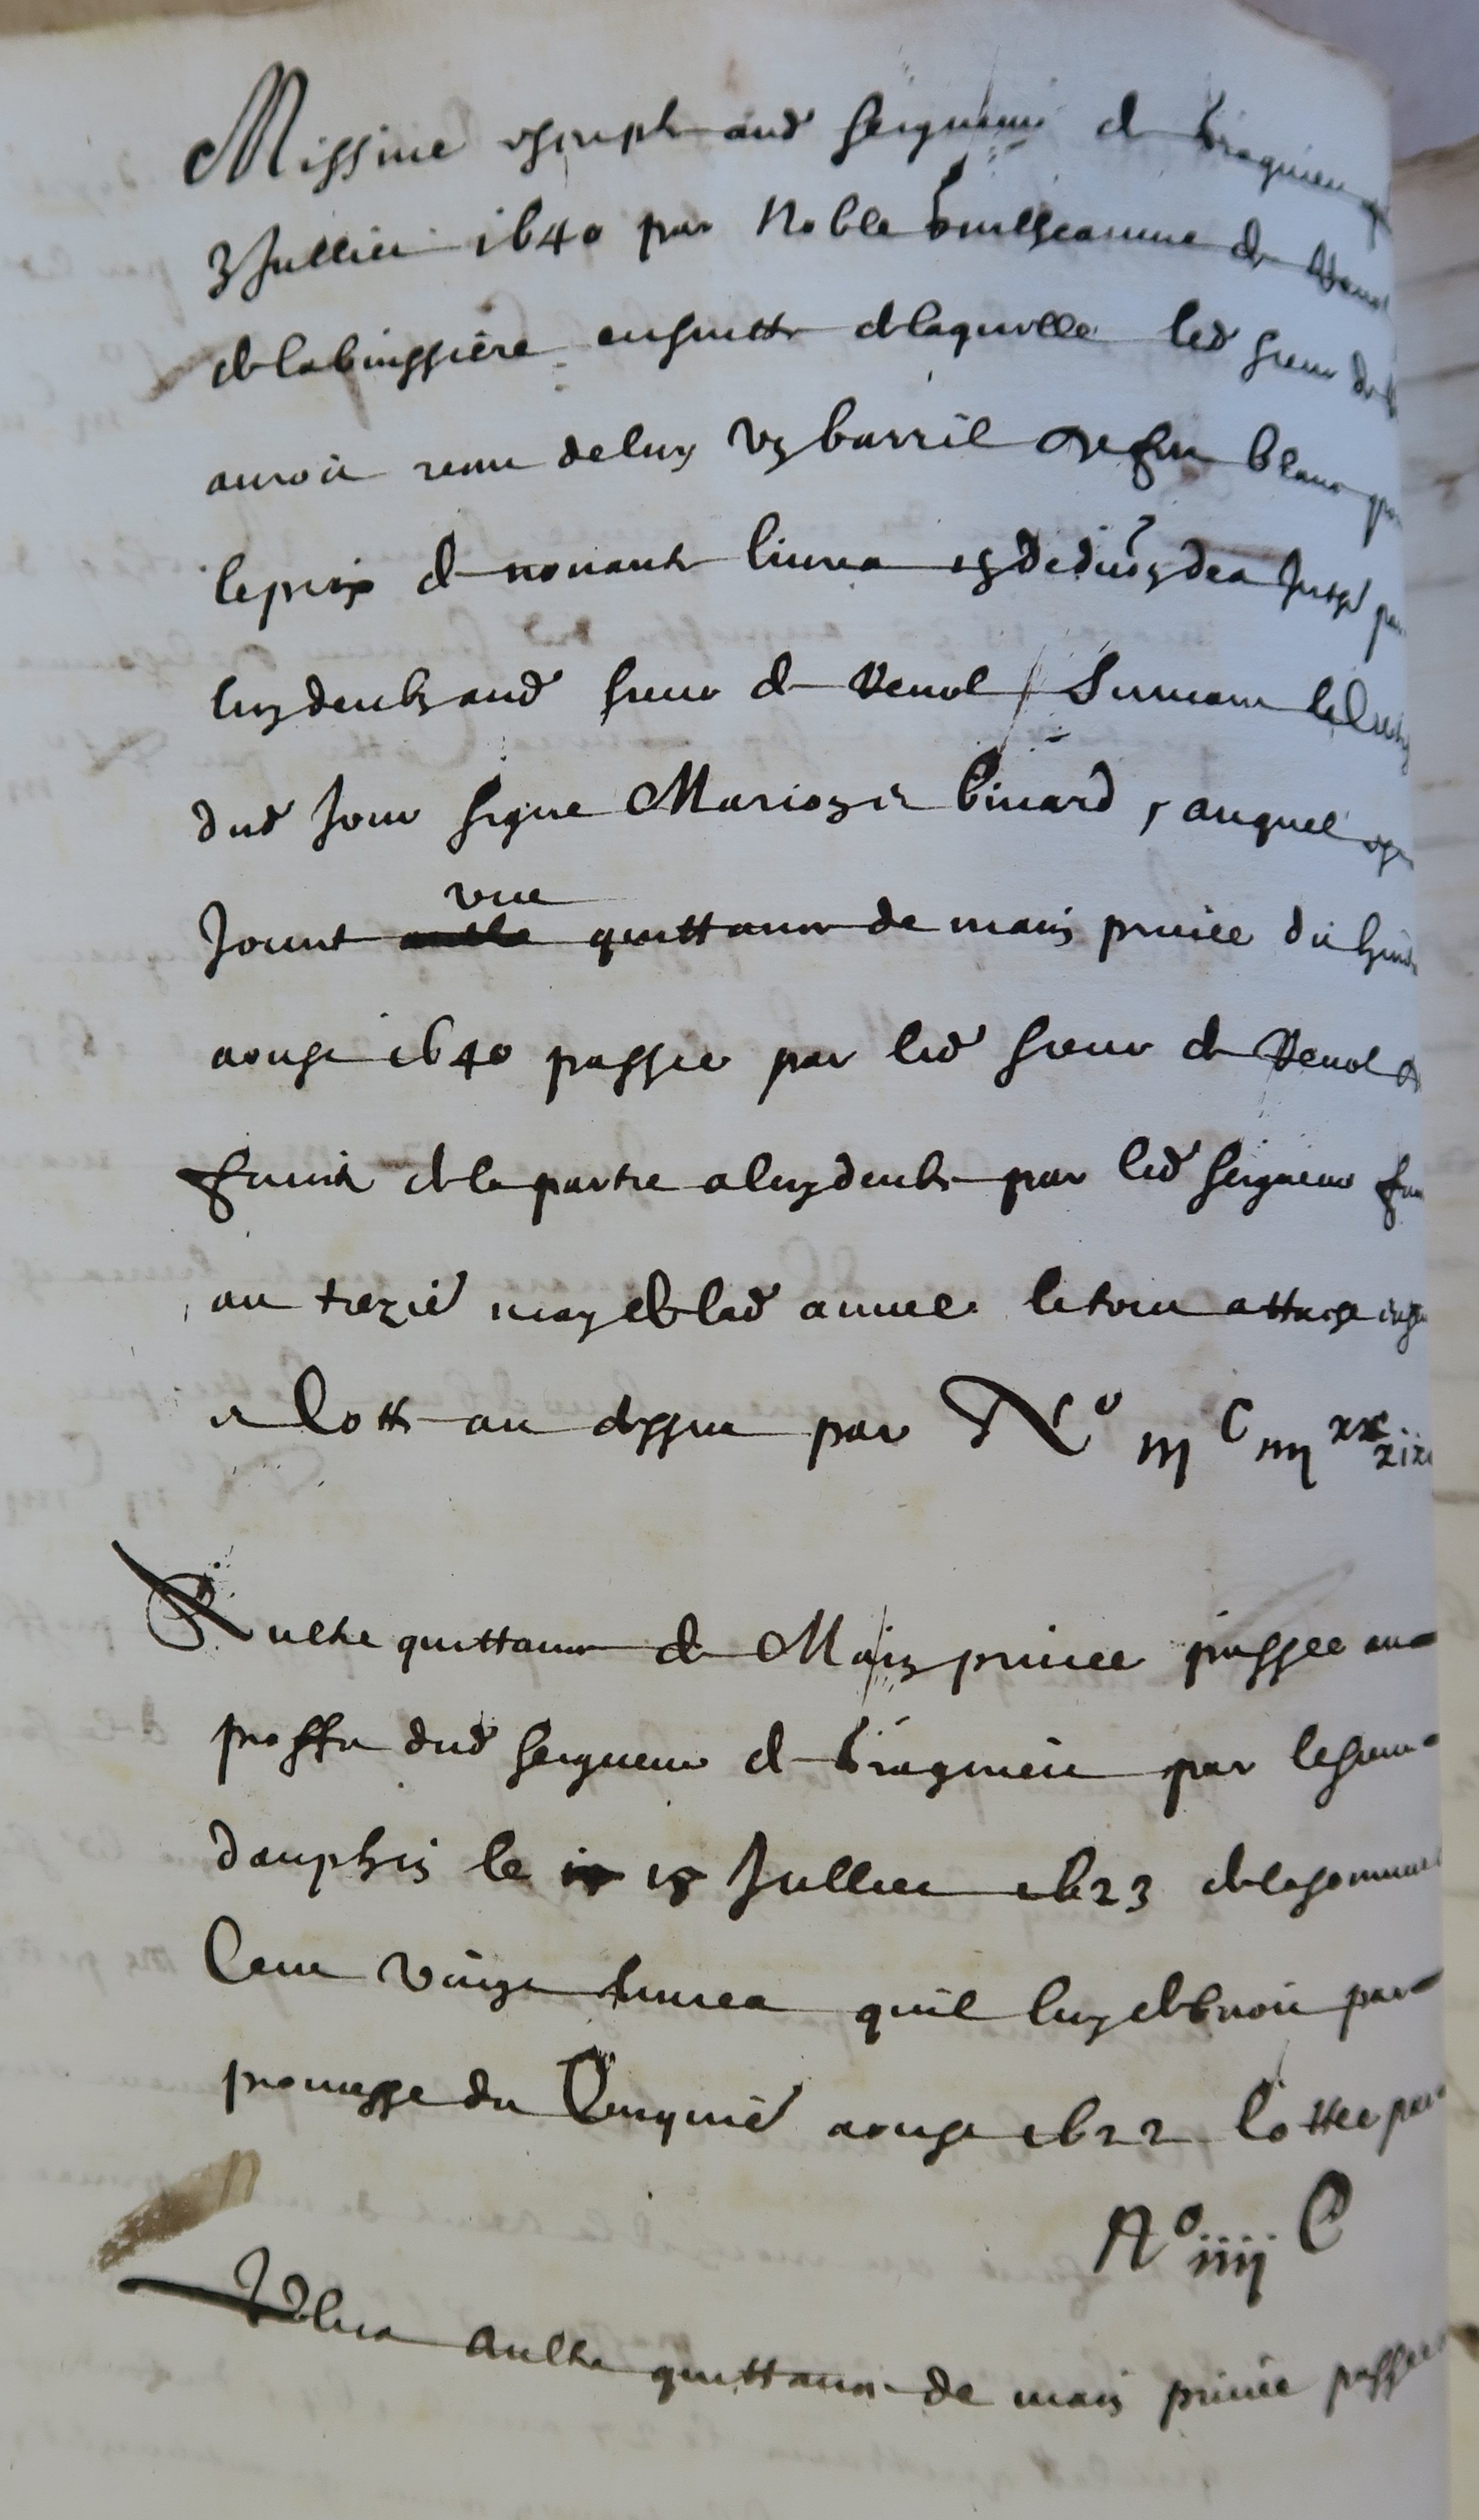 Missiue escripte aud seigneur de Bragnieu
3 Juillier 1640 par Noble Guilheaume de Venol
de la buissiere ensuitte de laquelle led sieur de
auroit receu de luy vn barril blanc
le prix de nonante liures dedu par
luy deubs aud sieur de Venol Suiuant
dud Jour signé Marion et Binard, auquel
Joinct vne quittance de main priuee du
aoust 1640 passee par led sieur de Venol
de la partie a luy deube par led seigneur
au trezie may de lad annee le tout attaché
et Cotté au dessus par N° iij C iiij xx xix

Aultre quittance de Main priuee passee au
proffit dud seigneur de Bragnieu par le sieur
dauphin le 18 Juillier 1623 de la somme
Cent vingt liures quil luy debuoit par
promesse du Cinquie aoust 1622 Cottee par
N° iiij C
Plus Aultre quittance de main priuée passee